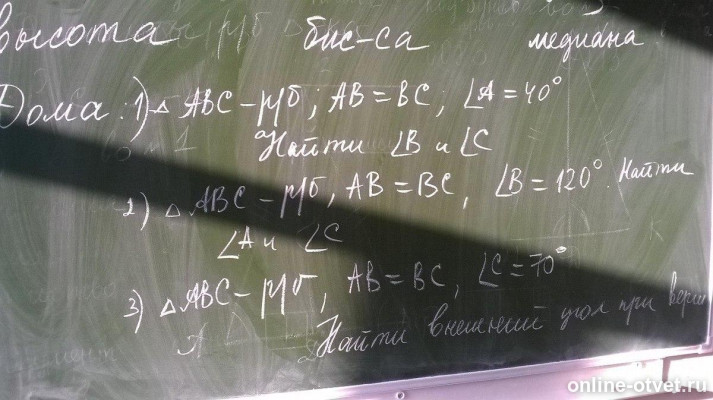 высота бис-са медиана
Дома: 1) △ ABC – р/б; AB = BC; ∠A = 40°
Найти ∠B и ∠C
2) △ ABC – р/б, AB = BC, ∠B = 120°. Найти
∠A и ∠C
3) △ ABC – р/б, AB = BC, ∠C = 70°
Найти внешний угол при верш
online-otvet.ru